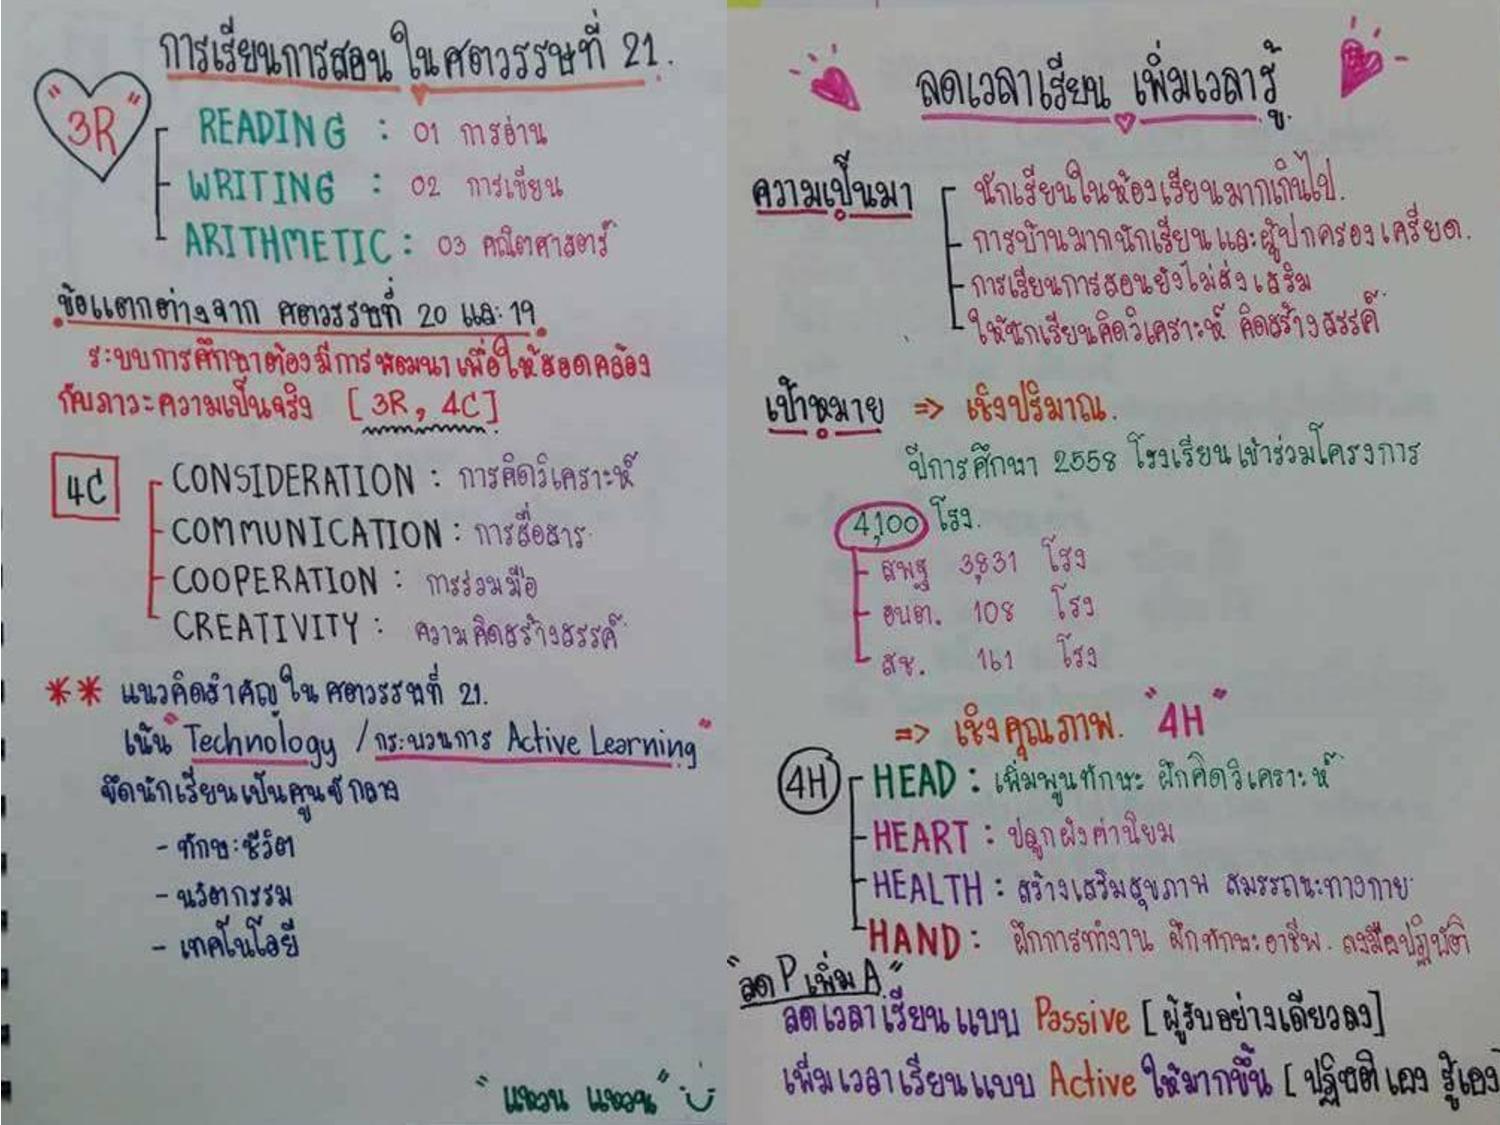 การเรียนการสอนในศตวรรษที่ 21.
"3R"
READING : 01 การอ่าน
WRITING : 02 การเขียน
ARITHMETIC : 03 คณิตศาสตร์
ข้อแตกต่างจาก ศตวรรษที่ 20 และ 19
ระบบการศึกษาต้องมีการพัฒนาเพื่อให้สอดคล้อง
กับภาวะความเป็นจริง [3R, 4C]
4C
CONSIDERATION : การคิดวิเคราะห์
COMMUNICATION : การสื่อสาร
COOPERATION : การร่วมมือ
CREATIVITY : ความคิดสร้างสรรค์
** แนวคิดสำคัญในศตวรรษที่ 21.
เน้น "Technology / กระบวนการ Active Learning"
ยึดนักเรียนเป็นศูนย์กลาง
- ทักษะชีวิต
- นวัตกรรม
- เทคโนโลยี
" แหวน แหวน "
ลดเวลาเรียน เพิ่มเวลารู้
ความเป็นมา
นักเรียนในห้องเรียนมากเกินไป.
การบ้านมากนักเรียนและผู้ปกครองเครียด.
การเรียนการสอนยังไม่ส่งเสริม
ให้นักเรียนคิดวิเคราะห์ คิดสร้างสรรค์
เป้าหมาย => เชิงปริมาณ.
ปีการศึกษา 2558 โรงเรียนเข้าร่วมโครงการ
4,100 โรง.
สพฐ 3,831 โรง
อปต. 108 โรง
สช. 161 โรง
=> เชิงคุณภาพ. "4H"
4H
HEAD : เพิ่มพูนทักษะ ฝึกคิดวิเคราะห์
HEART : ปลูกฝังค่านิยม
HEALTH : สร้างเสริมสุขภาพ สมรรถนะทางกาย
HAND : ฝึกการทำงาน ฝึกทักษะอาชีพ. ลงมือปฏิบัติ
"ลด P เพิ่ม A"
ลดเวลาเรียนแบบ Passive [ผู้รับอย่างเดียวลง]
เพิ่มเวลาเรียนแบบ Active ให้มากขึ้น [ปฏิบัติเอง รู้เอง